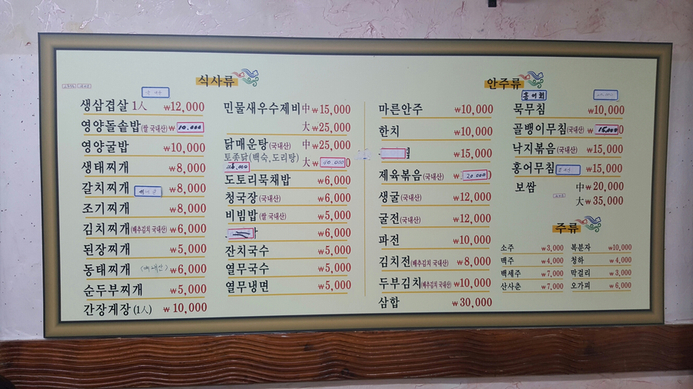 식사류
생삼겹살 1人 ₩12,000
영양돌솥밥(쌀 국내산) ₩10,000
영양굴밥 ₩10,000
생태찌개 ₩8,000
갈치찌개 ₩8,000
조기찌개 ₩8,000
김치찌개(배추김치 국내산) ₩6,000
된장찌개 ₩5,000
동태찌개 ₩6,000
순두부찌개 ₩5,000
간장게장(1人) ₩10,000
민물새우수제비 中 ₩15,000
大 ₩25,000
닭매운탕(국내산) 中 ₩25,000
토종닭(백숙,도리탕) 大 ₩
도토리묵채밥 ₩6,000
청국장(국내산) ₩6,000
비빔밥(쌀 국내산) ₩5,000
₩6,000
잔치국수 ₩5,000
열무국수 ₩5,000
열무냉면 ₩5,000
안주류
마른안주 ₩10,000
한치 ₩10,000
₩15,000
제육볶음(국내산) ₩20,000
생굴(국내산) ₩12,000
굴전(국내산) ₩12,000
파전 ₩10,000
김치전(배추김치 국내산) ₩8,000
두부김치(배추김치 국내산) ₩10,000
삼합 ₩30,000
홍어회
묵무침 ₩10,000
골뱅이무침(국내산) ₩15,000
낙지볶음(국내산) ₩15,000
홍어무침 ₩15,000
보쌈 中 ₩20,000
大 ₩35,000
주류
소주 ₩3,000 복분자 ₩10,000
맥주 ₩4,000 청하 ₩4,000
백세주 ₩7,000 막걸리 ₩3,000
산사춘 ₩7,000 오가피 ₩6,000